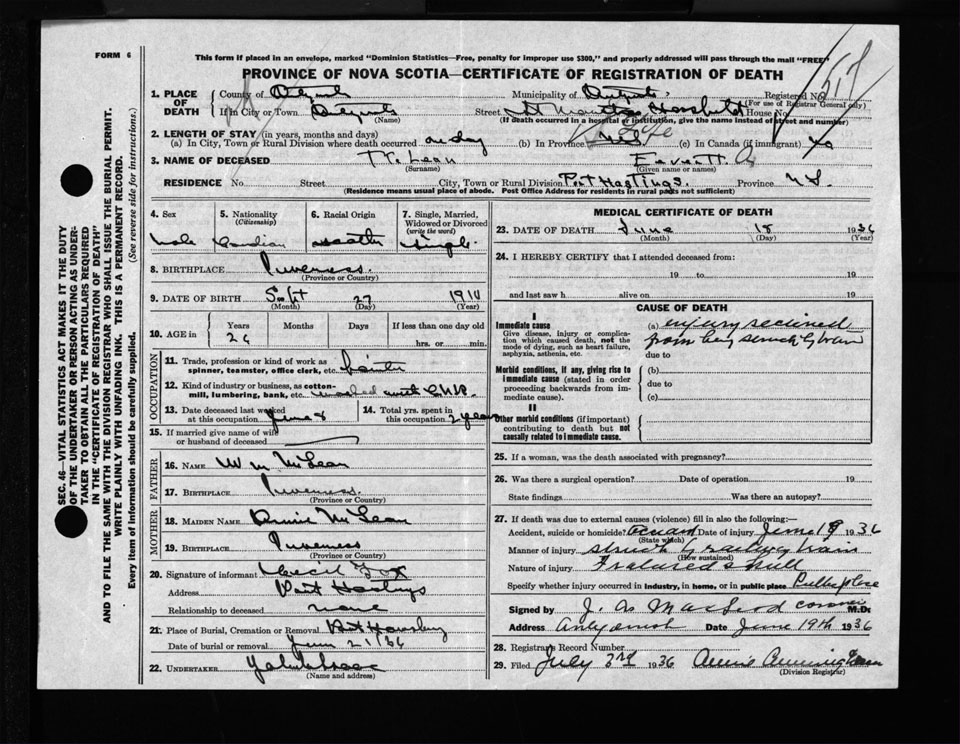 FORM 6
This form if placed in an envelope, marked "Dominion Statistics—Free, penalty for improper use $300," and properly addressed will pass through the mail "FREE"
PROVINCE OF NOVA SCOTIA—CERTIFICATE OF REGISTRATION OF DEATH
1. PLACE OF DEATH County of Municipality of Registered No.
(For use of Registrar General only)
If in City or Town Street St House No.
(Name) (If death occurred in a hospital or institution, give the name instead of street and number)
2. LENGTH OF STAY (in years, months and days)
(a) In City, Town or Rural Division where death occurred one day (b) In Province (c) In Canada (if immigrant)
3. NAME OF DECEASED McLean Everett A
(Surname) (Given name or names)
RESIDENCE No. Street City, Town or Rural Division Port Hastings. Province N S.
(Residence means usual place of abode. Post Office Address for residents in rural parts not sufficient)
4. Sex 5. Nationality (Citizenship) 6. Racial Origin 7. Single, Married, Widowed or Divorced (write the word)
Male Canadian Scotch Single.
8. BIRTHPLACE Inverness.
(Province or Country)
9. DATE OF BIRTH Sept 27 1910
(Month) (Day) (Year)
10. AGE in Years Months Days If less than one day old
26 hrs. or min.
OCCUPATION
11. Trade, profession or kind of work as spinner, teamster, office clerk, etc.
12. Kind of industry or business, as cotton-mill, lumbering, bank, etc. worked with
13. Date deceased last worked at this occupation June 8 14. Total yrs. spent in this occupation 2 years
15. If married give name of wife or husband of deceased
FATHER
16. NAME Wm McLean
17. BIRTHPLACE Inverness.
(Province or Country)
MOTHER
18. MAIDEN NAME Annie McLean
19. BIRTHPLACE Inverness
(Province or Country)
20. Signature of informant Cecil Fox
Address Port Hastings
Relationship to deceased none
21. Place of Burial, Cremation or Removal Port
Date of burial or removal June 21/36
22. UNDERTAKER
(Name and address)
MEDICAL CERTIFICATE OF DEATH
23. DATE OF DEATH June 18 1936
(Month) (Day) (Year)
24. I HEREBY CERTIFY that I attended deceased from:
19 to 19
and last saw h alive on 19
CAUSE OF DEATH
I
Immediate cause
Give disease, injury or complication which caused death, not the mode of dying, such as heart failure, asphyxia, asthenia, etc.
(a) injury received
from being struck by train
due to
Morbid conditions, if any, giving rise to immediate cause (stated in order proceeding backwards from immediate cause).
(b)
due to
(c)
II
Other morbid conditions (if important) contributing to death but not causally related to immediate cause.
25. If a woman, was the death associated with pregnancy?
26. Was there a surgical operation? Date of operation 19
State findings Was there an autopsy?
27. If death was due to external causes (violence) fill in also the following:—
Accident, suicide or homicide? Date of injury June 18 1936
(State which)
Manner of injury struck by railway train
(How sustained)
Nature of injury Fractured skull
Specify whether injury occurred in industry, in home, or in public place Public place
Signed by J. A MacLeod coroner M.D.
Address Antigonish Date June 19th 1936
28. Registrar's Record Number
29. Filed July 3rd 1936 Annie Cunningham
(Division Registrar)
SEC. 46—VITAL STATISTICS ACT MAKES IT THE DUTY
OF THE UNDERTAKER OR PERSON ACTING AS UNDER-
TAKER TO OBTAIN ALL THE PARTICULARS REQUIRED
IN THE "CERTIFICATE OF REGISTRATION OF DEATH"
AND TO FILE THE SAME WITH THE DIVISION REGISTRAR WHO SHALL ISSUE THE BURIAL PERMIT.
WRITE PLAINLY WITH UNFADING INK. THIS IS A PERMANENT RECORD.
Every item of information should be carefully supplied. (See reverse side for instructions.)